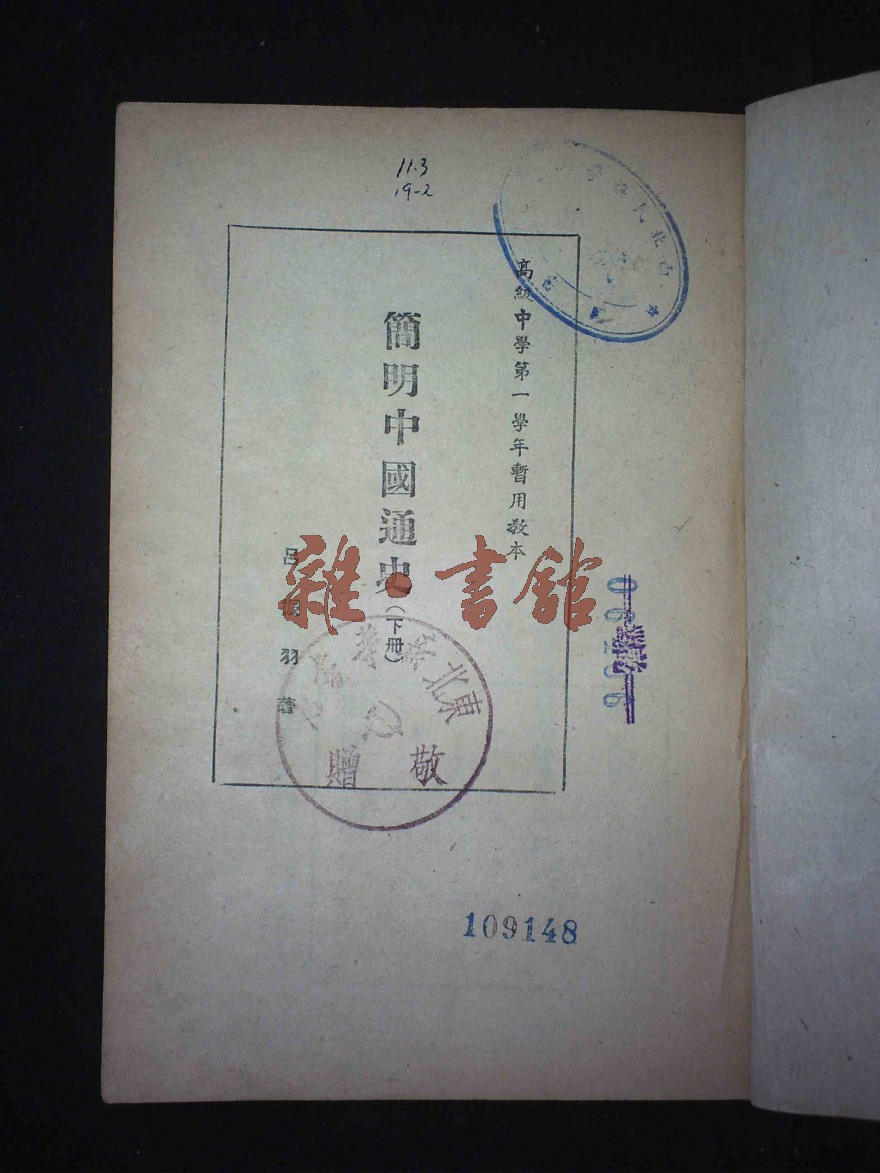 11.3
19-2
高級中學第一學年暫用教本
簡明中國通史(下册)
呂振羽著
雜·書館
東北
敬贈
109148